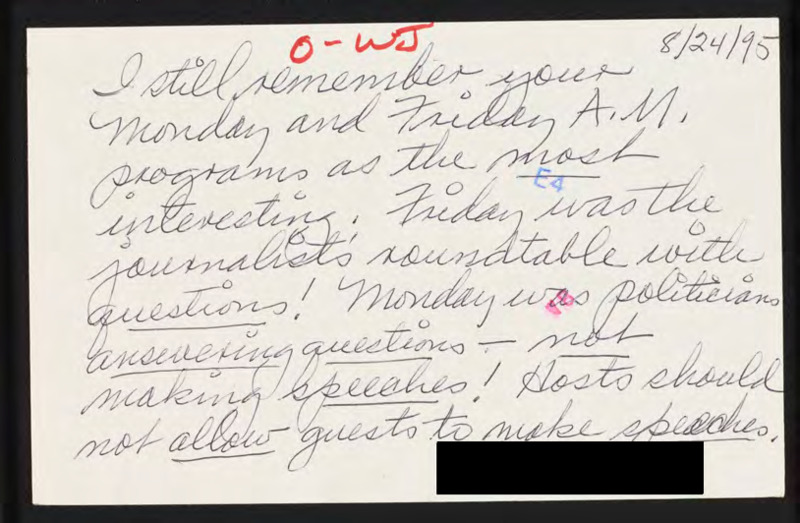 O-WJ
8/24/95
I still remember your
Monday and Friday A.M.
programs as the most
E4
interesting. Friday was the
journalists' roundtable with
questions! Monday was politicians
answering questions — not
making speeches! Hosts should
not allow guests to make speeches.